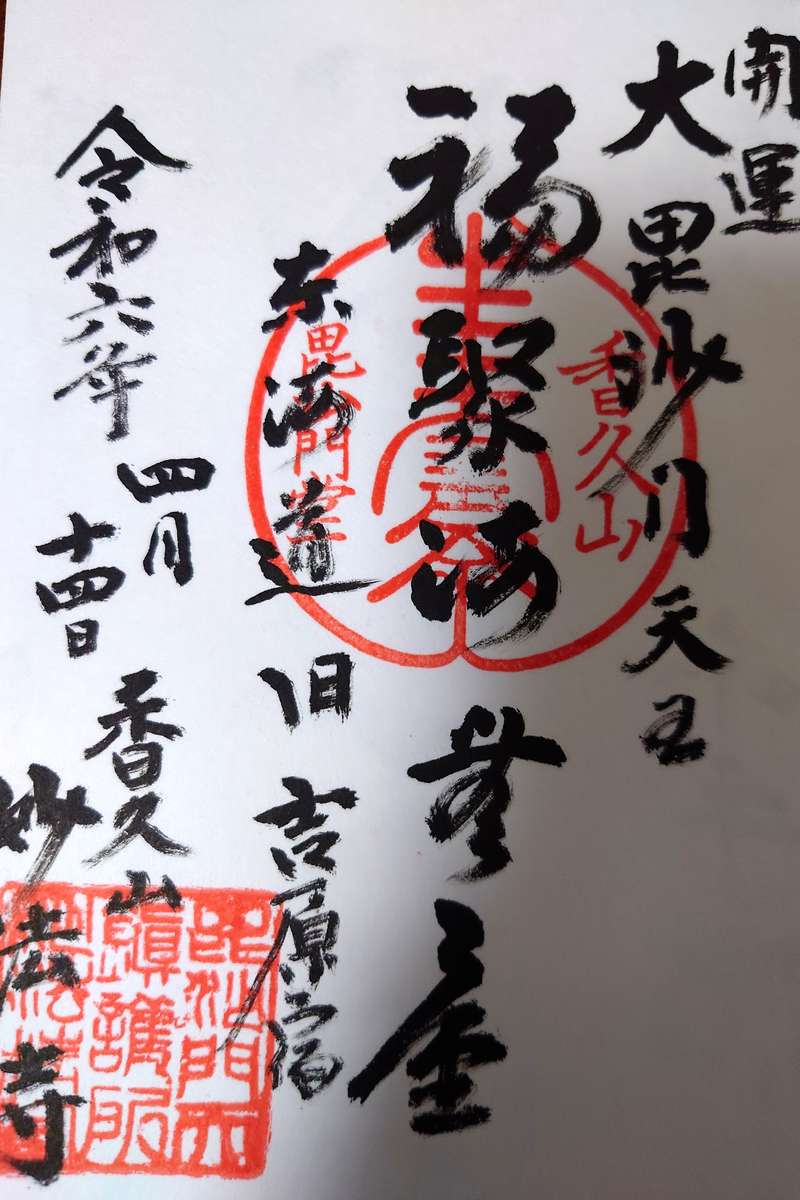 開運
大毘沙門天王
福聚海無量
東海道 旧吉原宿
令和六年
四月
十四日
香久山
妙法寺
香久山
毘沙門堂